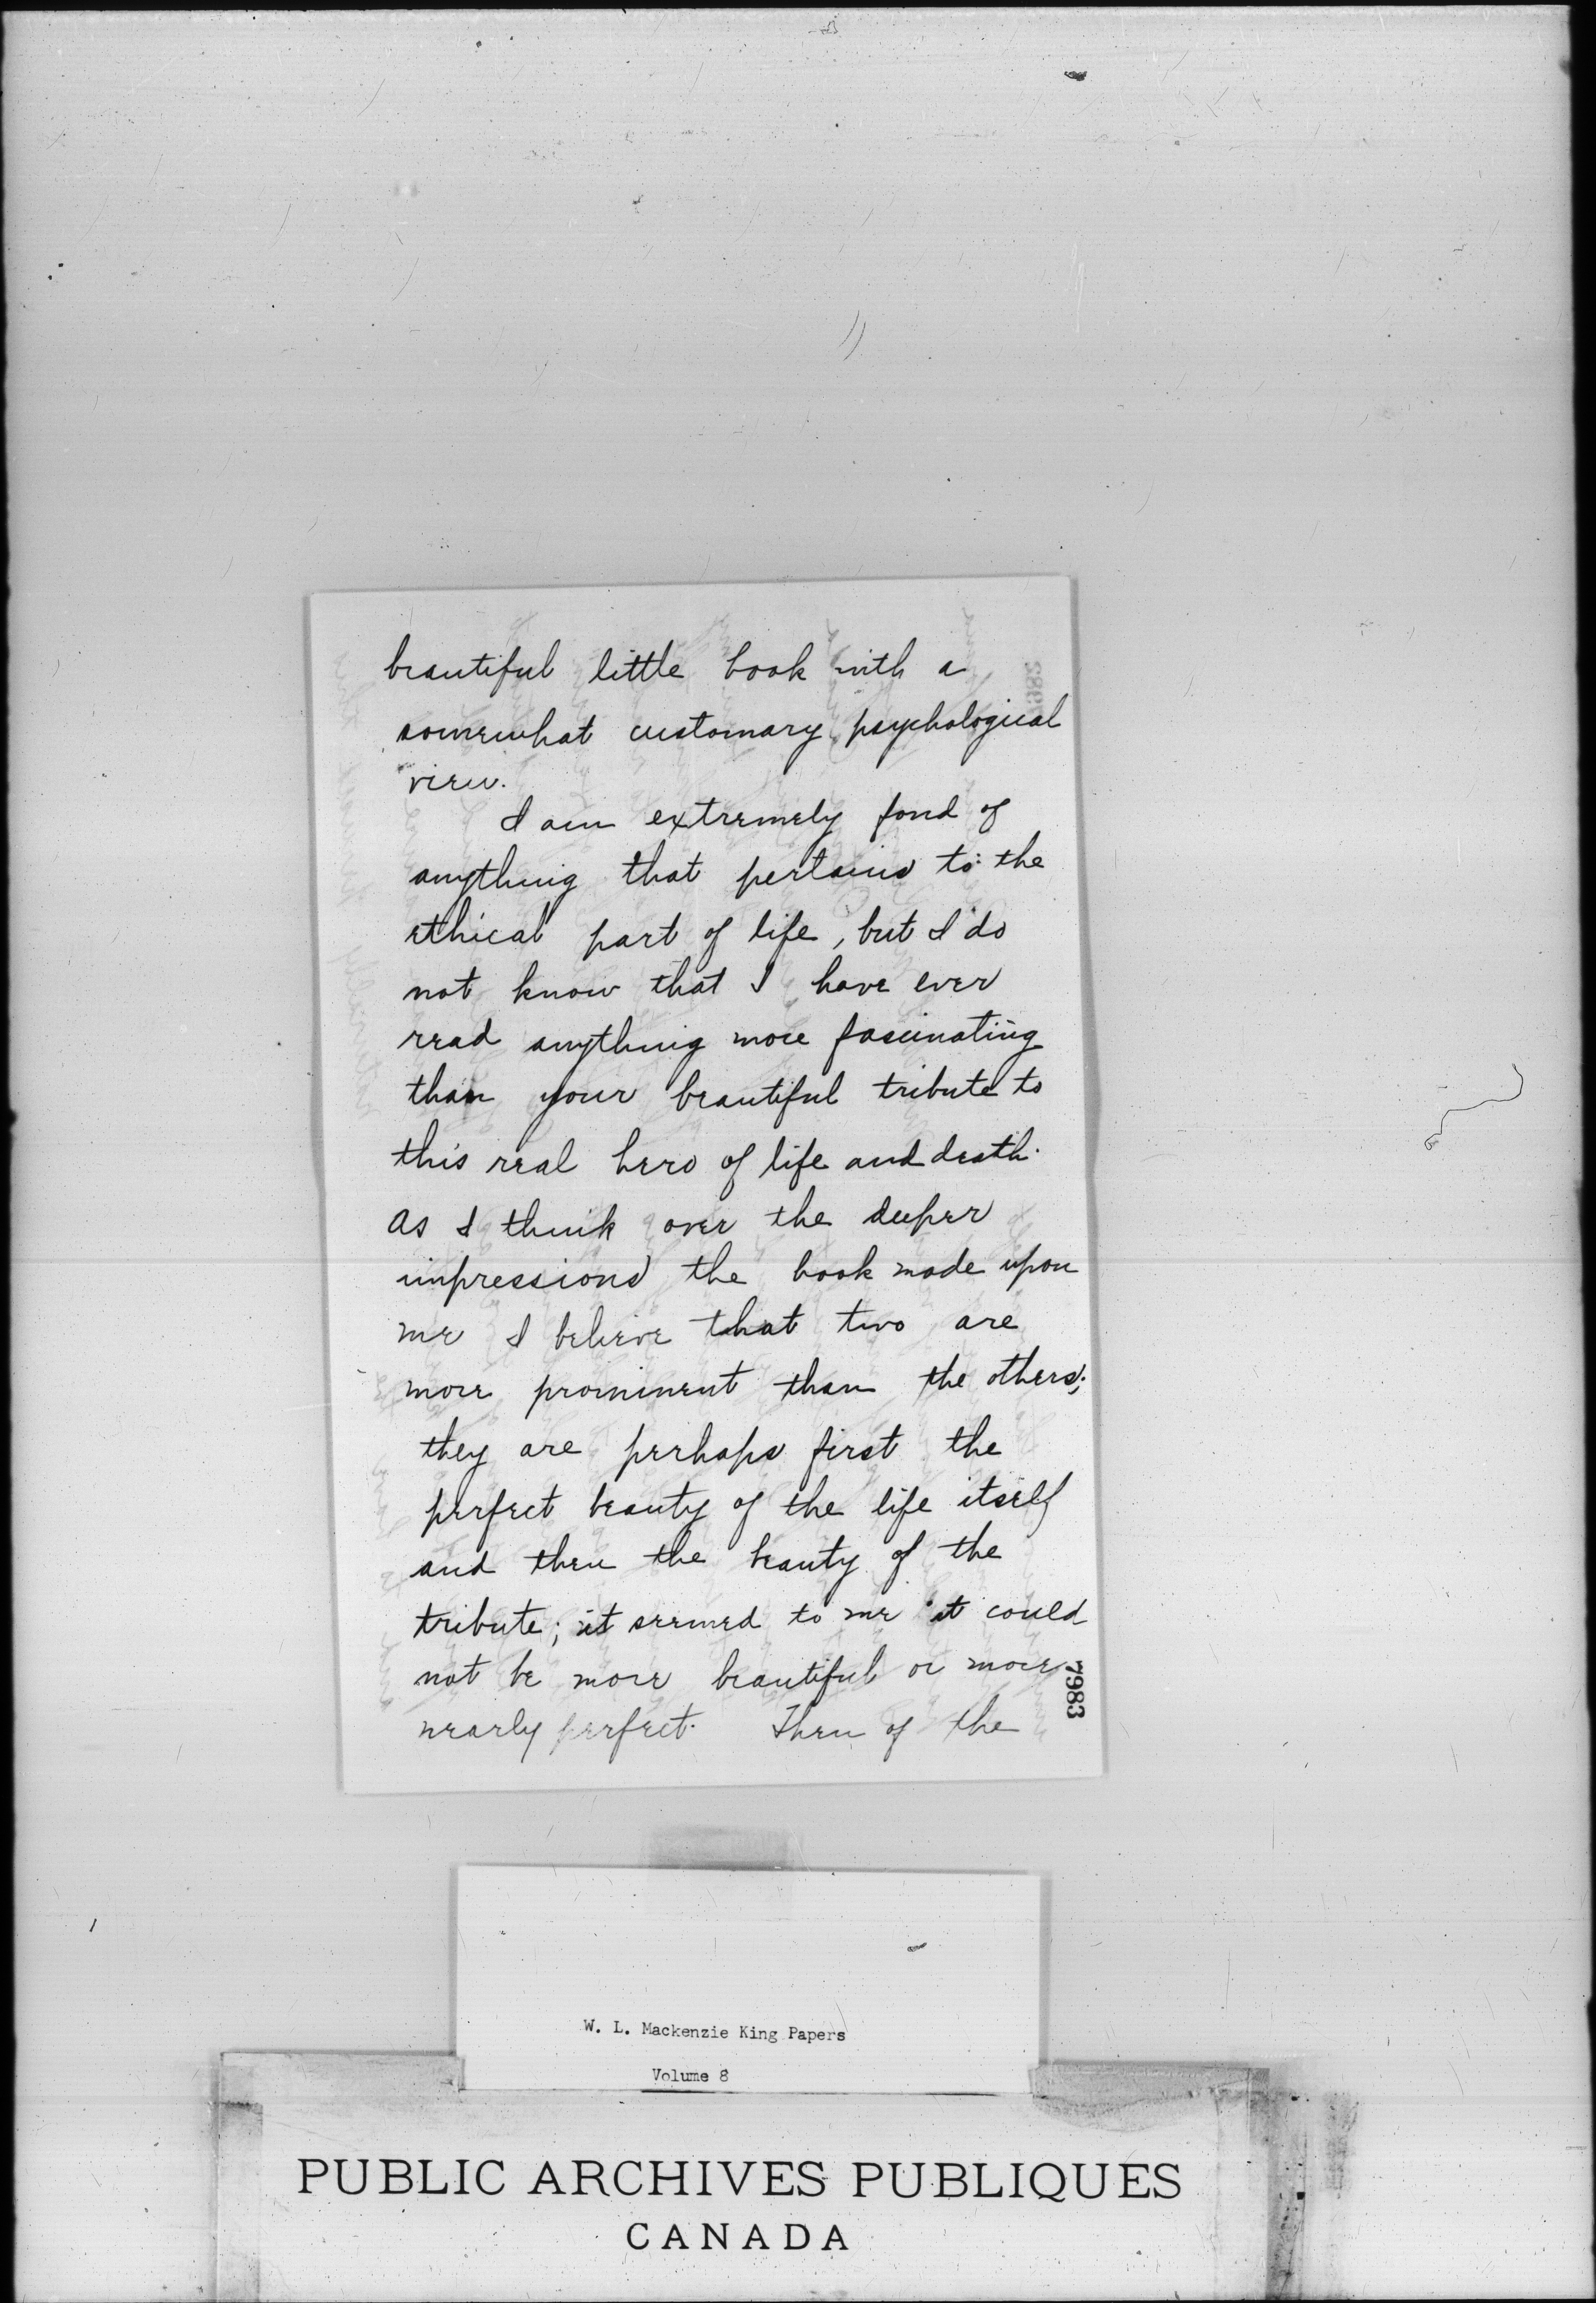 beautiful little book with a
somewhat customary psychological
view.
I am extremely fond of
anything that pertains to the
ethical part of life, but I do
not know that I have ever
read anything more fascinating
than your beautiful tribute to
this real hero of life and death.
As I think over the deeper
impressions the book made upon
me I believe that two are
more prominent than the others;
they are perhaps first the
perfect beauty of the life itself
and then the beauty of the
tribute; it seemed to me it could
not be more beautiful or more
nearly perfect. Then of the
7983
W. L. Mackenzie King Papers
Volume 8
PUBLIC ARCHIVES PUBLIQUES
CANADA